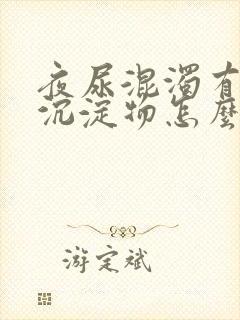 夜尿混濁有
沉淀物怎麼
游定斌